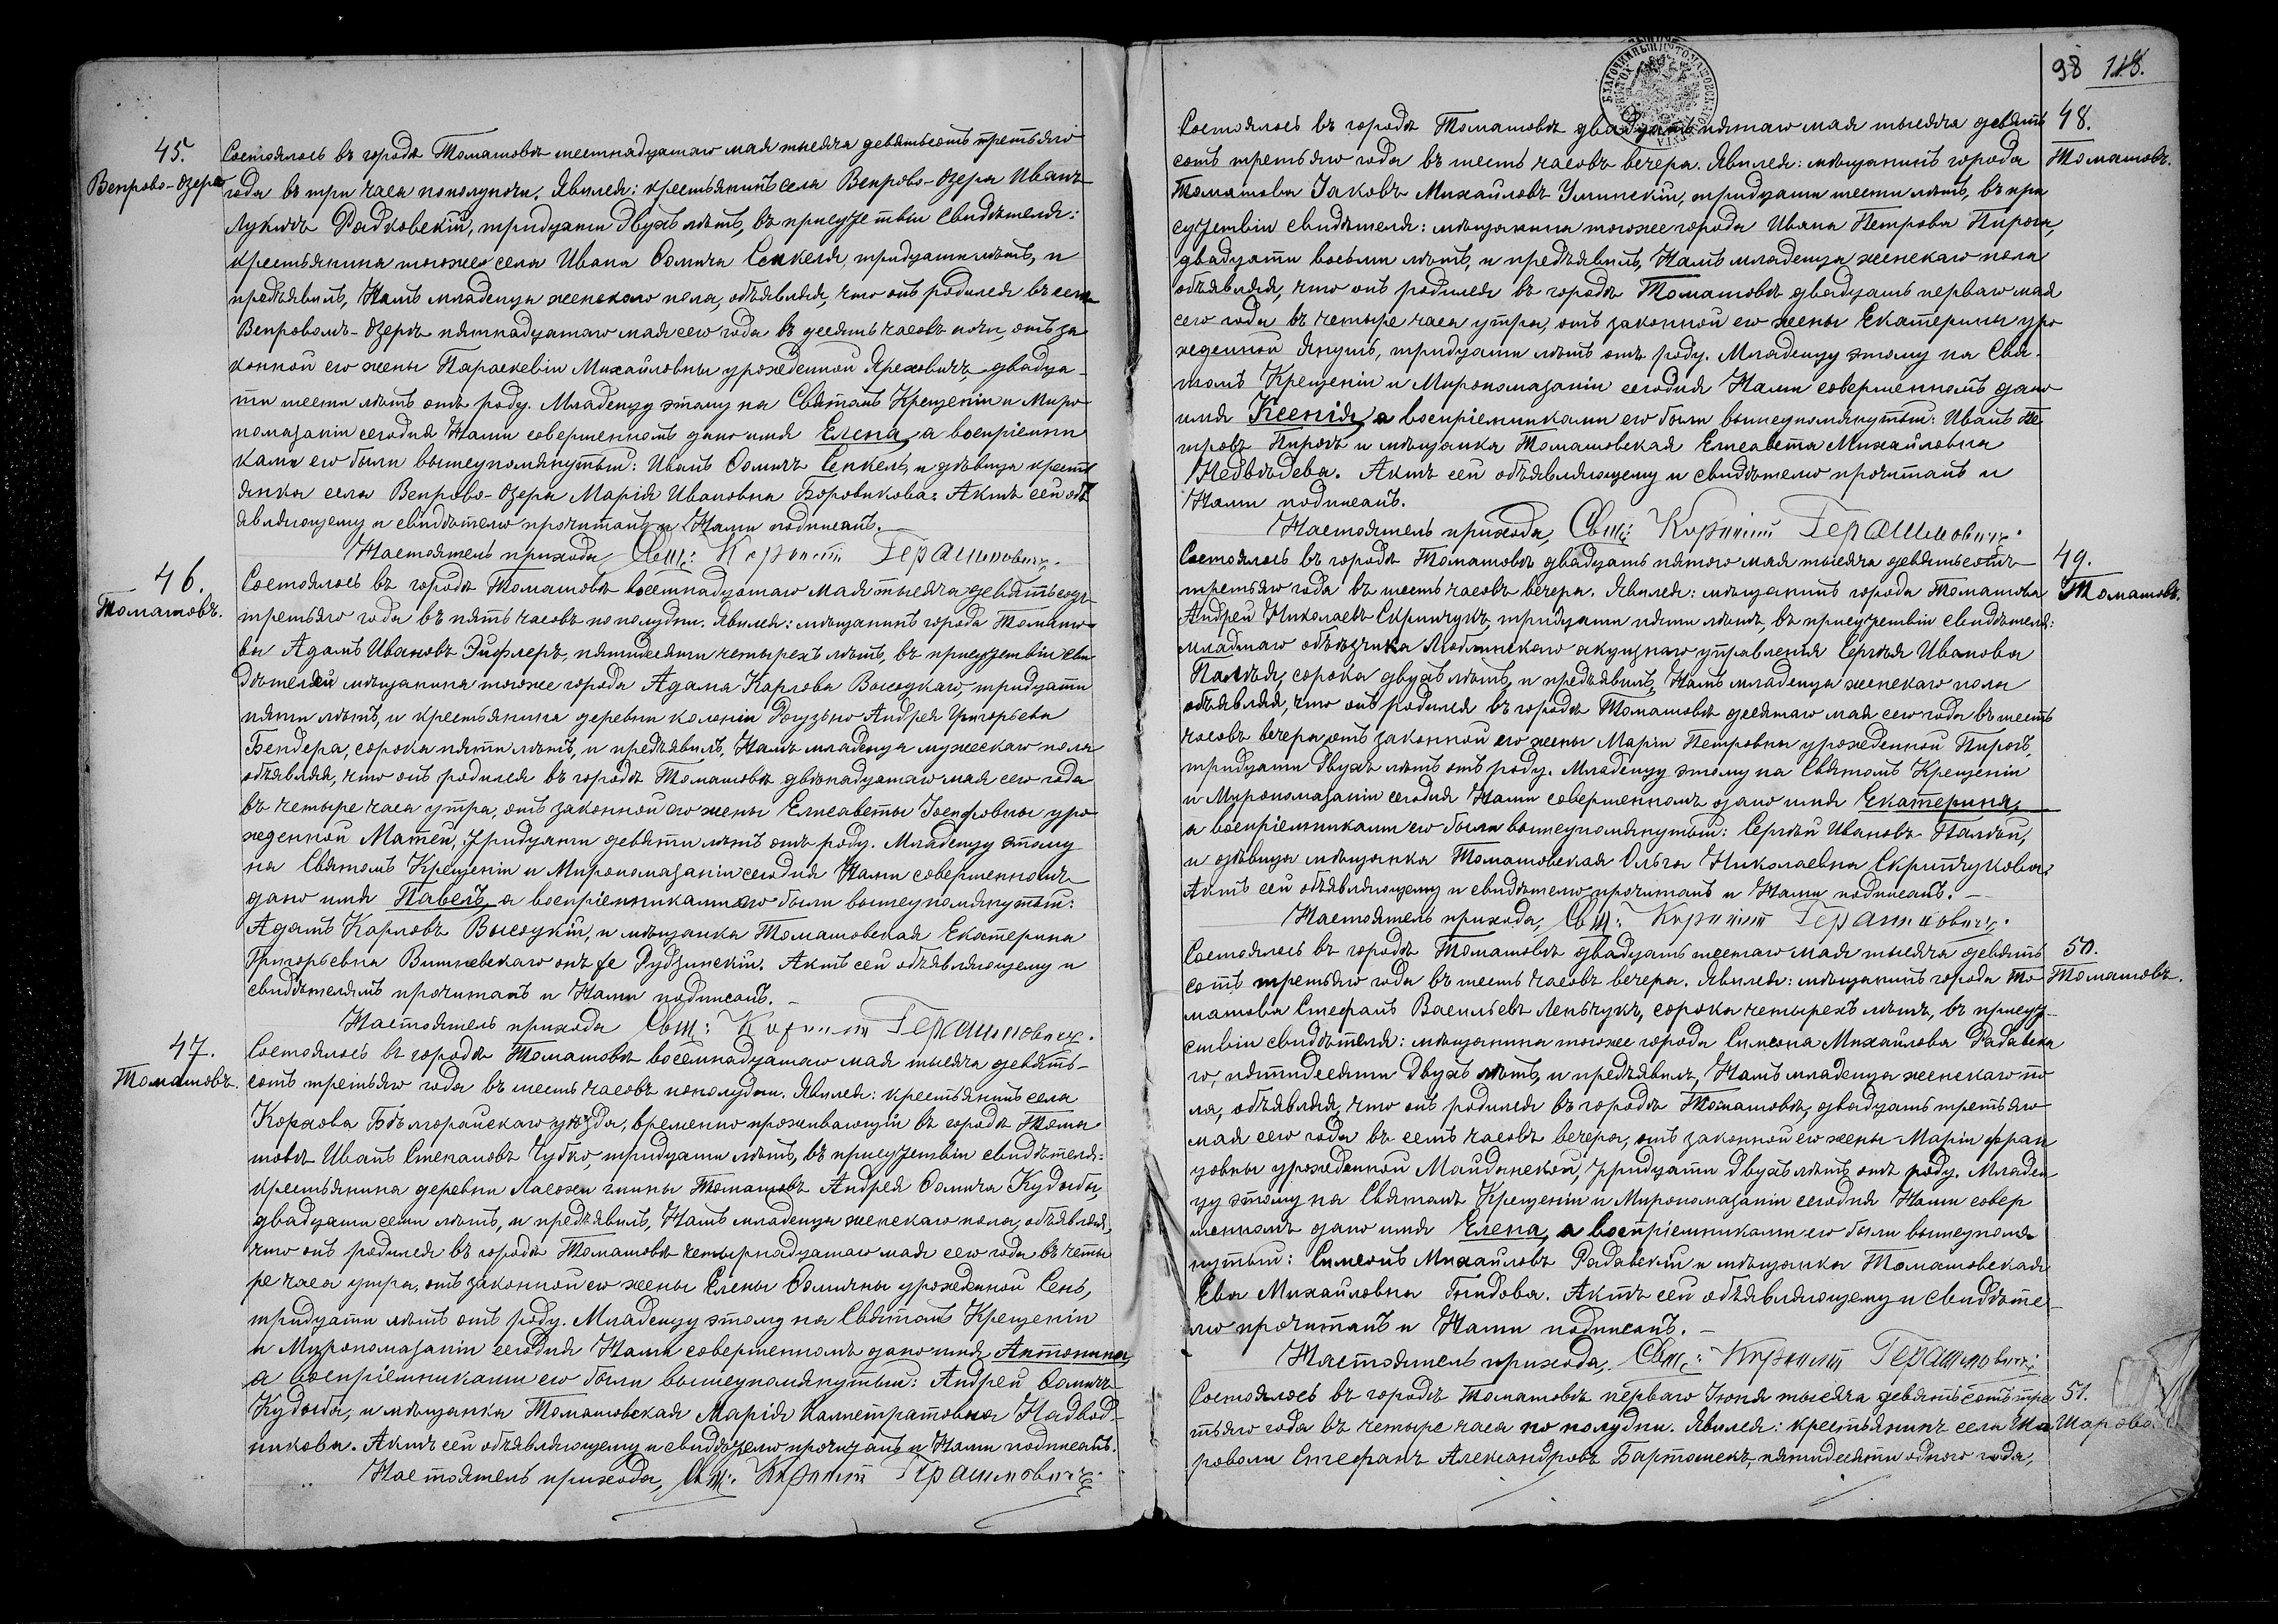 45.
Вепрово-Озеро
Состоялось въ городѣ Томашовѣ шестнадцатаго мая тысяча девятьсотъ третьяго
года въ три часа пополуночи. Явился: крестьянинъ села Вепрово-Озера Иванъ
Лукичъ Радковскій, тридцати двухъ лѣтъ, въ присутствіи свидѣтеля:
крестьянина тогоже села Ивана Ѳомича Сенкеля, тридцати лѣтъ, и
предъявилъ Намъ младенца женскаго пола, объявляя, что онъ родился въ селѣ
Вепровомъ-Озерѣ пятнадцатаго мая сего года въ десять часовъ ночи, отъ за
конной его жены Параскевіи Михайловны урожденной двадца-
ти шести лѣтъ отъ роду. Младенцу этому на Святомъ Крещеніи и Миро
помазаніи сегодня Нами совершенномъ дано имя Елена, а воспріемни
ками его были вышеупомянутый: Иванъ Ѳомичъ Сенкель, и дѣвица кресть
янка села Вепрово-Озера Марія Ивановна Боровикова. Актъ сей объ
являющему и свидѣтелю прочитанъ и Нами подписанъ.
Настоятель прихода, Свщ: Корнилій Герасимовичъ.
46.
Томашовъ.
Состоялось въ городѣ Томашовѣ восемнадцатаго мая тысяча девятьсотъ
третьяго года въ пять часовъ пополудни. Явился: мѣщанинъ города Томашо
ва Адамъ Ивановъ Эйфлеръ, пятидесяти четырехъ лѣтъ, въ присутствіи сви
дѣтелей мѣщанина тогоже города Адама Карлова Высоцкаго, тридцати
пяти лѣтъ, и крестьянина деревни колоніи Рогузьно Андрея Григорьева
Бендера, сорока пяти лѣтъ, и предъявилъ Намъ младенца мужескаго пола
объявляя, что онъ родился въ городѣ Томашовѣ двѣнадцатаго мая сего года
въ четыре часа утра, отъ законной его жены Елисаветы Іосифовны уро
жденной Матей, тридцати девяти лѣтъ отъ роду. Младенцу этому
на Святомъ Крещеніи и Миропомазаніи сегодня Нами совершенномъ
дано имя Павелъ, а воспріемниками его были вышеупомянутый:
Адамъ Карловъ Высоцкій, и мѣщанка Томашовская Екатерина
Григорьевна Вишневскаго онъ же Рудзинскій. Актъ сей объявляющему и
свидѣтелямъ прочитанъ и Нами подписанъ. -
Настоятель прихода Свщ: Корнилій Герасимовичъ.
47.
Томашовъ.
Состоялось въ городѣ Томашовѣ восемнадцатаго мая тысяча девять-
сотъ третьяго года въ шесть часовъ пополудни. Явился: крестьянинъ села
Корхова Бѣлгорайскаго уѣзда, временно проживающій въ городѣ Тома
шовѣ Иванъ Степановъ Чубко, тридцати лѣтъ, въ присутствіи свидѣтеля:
крестьянина деревни гмины Томашовъ Андрея Ѳомича Кудыбы,
двадцати семи лѣтъ, и предъявилъ Намъ младенца женскаго пола, объявляя,
что онъ родился въ городѣ Томашовѣ четырнадцатаго мая сего года въ четы
ре часа утра, отъ законной его жены Елены Ѳомичны урожденной Сень,
тридцати лѣтъ отъ роду. Младенцу этому на Святомъ Крещеніи
и Миропомазаніи сегодня Нами совершенномъ дано имя Антонина,
а воспріемниками его были вышеупомянутый: Андрей Ѳомичъ
Кудыба, и мѣщанка Томашовская Марія Каллистратовна Надвод-
никова. Актъ сей объявляющему и свидѣтелю прочитанъ и Нами подписанъ.
Настоятель прихода, Свщ: Корнилій Герасимовичъ.
98 118.
48.
Томашовъ.
Состоялось въ городѣ Томашовѣ двадцать пятаго мая тысяча девять
сотъ третьяго года въ шесть часовъ вечера. Явился: мѣщанинъ города
Томашова Іаковъ Михайловъ Улинскій, тридцати шести лѣтъ, въ при
сутствіи свидѣтеля: мѣщанина тогоже города Ивана Петрова Пирога,
двадцати восьми лѣтъ, и предъявилъ Намъ младенца женскаго пола
объявляя, что онъ родился въ городѣ Томашовѣ двадцать перваго мая
сего года въ четыре часа утра, отъ законной его жены Екатерины уро
жденной Янушъ, тридцати лѣтъ отъ роду. Младенцу этому на Свя-
томъ Крещеніи и Миропомазаніи сегодня Нами совершенномъ дано
имя Ксенія, а воспріемниками его были вышеупомянутый: Иванъ Пе
тровъ Пирогъ и мѣщанка Томашовская Елисавета Михайловна
Недвѣдева. Актъ сей объявляющему и свидѣтелю прочитанъ и
Нами подписанъ.
Настоятель прихода, Свщ: Корнилій Герасимовичъ.
49.
Томашовъ.
Состоялось въ городѣ Томашовѣ двадцать пятого мая тысяча девятьсотъ
третьяго года въ шесть часовъ вечера. Явился: мѣщанинъ города Томашова
Андрей Николаевъ Скрипчукъ, тридцати пяти лѣтъ, въ присутствіи свидѣтеля:
младшаго объѣзчика Люблинскаго акцизнаго управленія Сергѣя Иванова
Палѣя, сорока двухъ лѣтъ, и предъявилъ Намъ младенца женскаго пола
объявляя, что онъ родился въ городѣ Томашовѣ десятаго мая сего года въ шесть
часовъ вечера, отъ законной его жены Маріи Петровны урожденной Пирогъ,
тридцати двухъ лѣтъ отъ роду. Младенцу этому на Святомъ Крещеніи
и Миропомазаніи сегодня Нами совершенномъ дано имя Екатерина,
а воспріемниками его были вышеупомянутый: Сергѣй Ивановъ Палѣй,
и дѣвица мѣщанка Томашовская Ольга Николаевна Скрипчукова.
Актъ сей объявляющему и свидѣтелю прочитанъ и Нами подписанъ. -
Настоятель прихода, Свщ: Корнилій Герасимовичъ.
50.
Томашовъ.
Состоялось въ городѣ Томашовѣ двадцать шестаго мая тысяча девять
сотъ третьяго года въ шесть часовъ вечера. Явился: мѣщанинъ города То
машова Стефанъ Васильевъ Леньчукъ, сорока четырехъ лѣтъ, въ присут-
ствіи свидѣтеля: мѣщанина тогоже города Симеона Михайлова Радавска
го, пятидесяти двухъ лѣтъ, и предъявилъ Намъ младенца женскаго по
ла, объявляя, что онъ родился въ городѣ Томашовѣ, двадцать третьяго
мая сего года въ семь часовъ вечера, отъ законной его жены Маріи Фран
цовны урожденной Майданской, тридцати двухъ лѣтъ отъ роду. Младен
цу этому на Святомъ Крещеніи и Миропомазаніи сегодня Нами совер
шенномъ дано имя Елена, а воспріемниками его были вышеупомя
нутый: Симеонъ Михайловъ Радавскій и мѣщанка Томашовская
Ева Михайловна Гнидова. Актъ сей объявляющему и свидѣте-
лю прочитанъ и Нами подписанъ. -
Настоятель прихода, Свщ: Корнилій Герасимовичъ.
51.
Шарово
Состоялось въ городѣ Томашовѣ перваго Іюня тысяча девятьсотъ тре
тьяго года въ четыре часа по полудни. Явился: крестьянинъ села Ша
роволи Стефанъ Александровъ Бартошекъ, пятидесяти одного года,